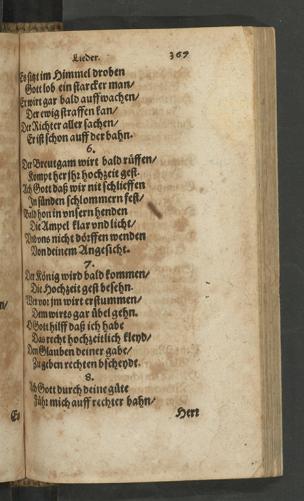 Lieder. 367
Es sitzt im Himmel droben
Gott lob ein starcker man/
Er wirt gar bald auffwachen/
Der ewig straffen kan/
Der Richter aller sachen/
Er ist schon auff der bahn.
6.
Der Breutgam wirt bald rüffen/
Kompt her jhr hochzeit gest.
Ach Gott daß wir nit schlieffen
In sünden schlommern fest/
Bald hon in vnsern henden
Die Ampel klar vnd licht/
Vnd vns nicht dörffen wenden
Von deinem Angesicht.
7.
Der König wird bald kommen/
Die Hochzeit gest besehn.
Wer vor jm wirt erstummen/
Dem wirts gar übel gehn.
O Gott hilff daß ich habe
Das recht hochzeitlich kleyd/
Den Glauben deiner gabe/
Zu geben rechten bscheydt.
8.
Ach Gott durch deine güte
Führ mich auff rechter bahn/
Herr